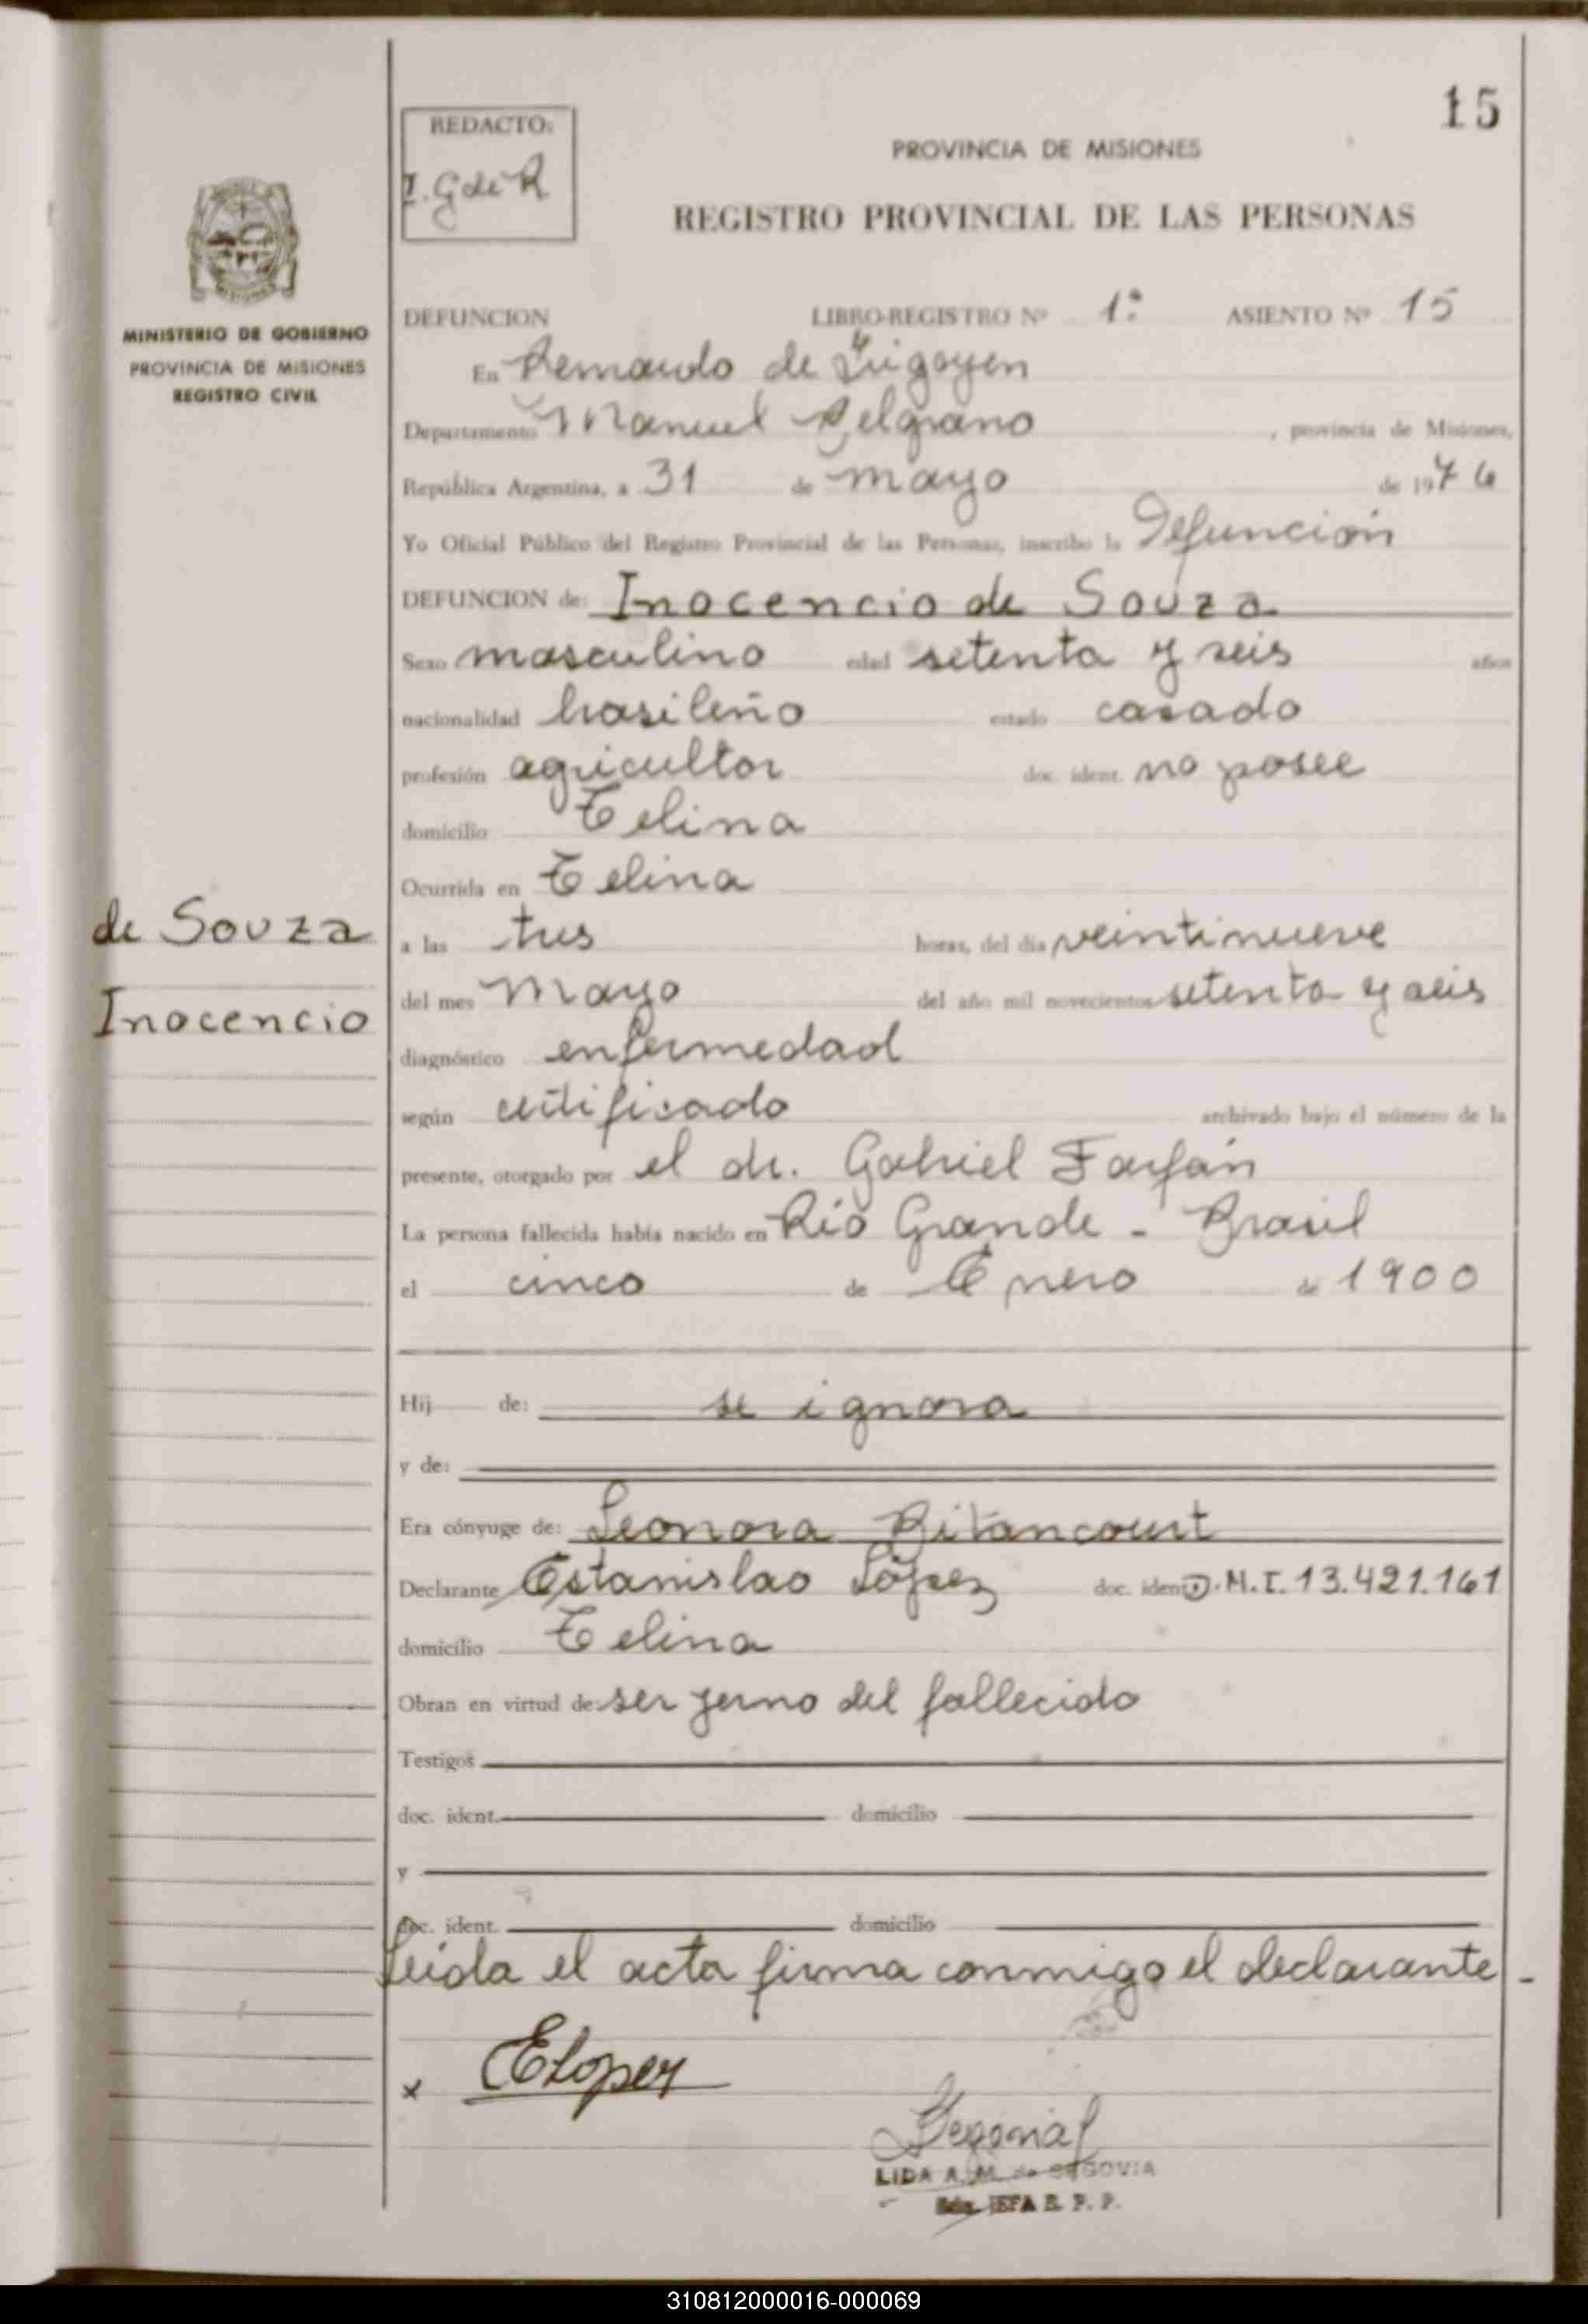 15
REDACTO:
I. G de R
PROVINCIA DE MISIONES
REGISTRO PROVINCIAL DE LAS PERSONAS
MINISTERIO DE GOBIERNO
PROVINCIA DE MISIONES
REGISTRO CIVIL
DEFUNCION LIBRO-REGISTRO Nº 1º ASIENTO Nº 15
En Bernardo de Irigoyen
Departamento Manuel Belgrano, provincia de Misiones,
República Argentina, a 31 de mayo de 1976
Yo Oficial Público del Registro Provincial de las Personas, inscribo la Defunción
DEFUNCION de: Inocencio de Souza
Sexo masculino edad setenta y seis años
nacionalidad brasileño estado casado
profesión agricultor doc. ident. no posee
domicilio
Ocurrida en
de Souza
a las tres horas, del día veintinueve
del mes Mayo del año mil novecientos setenta y seis
Inocencio
diagnóstico enfermedad
según certificado archivado bajo el número de la
presente, otorgado por el dr. Gabriel Farfán
La persona fallecida había nacido en Río Grande - Brasil
el cinco de Enero de 1900
Hij de: se ignora
y de:
Era cónyuge de: Leonora Bitancourt
Declarante Estanislao López doc. ident. D.M.I. 13.421.161
domicilio
Obran en virtud de: ser yerno del fallecido
Testigos
doc. ident. domicilio
y
doc. ident. domicilio
Leída el acta firma conmigo el declarante -
x ELopez
LIDA A. M. de SEGOVIA
JEFA R. P. P.
310812000016-000069